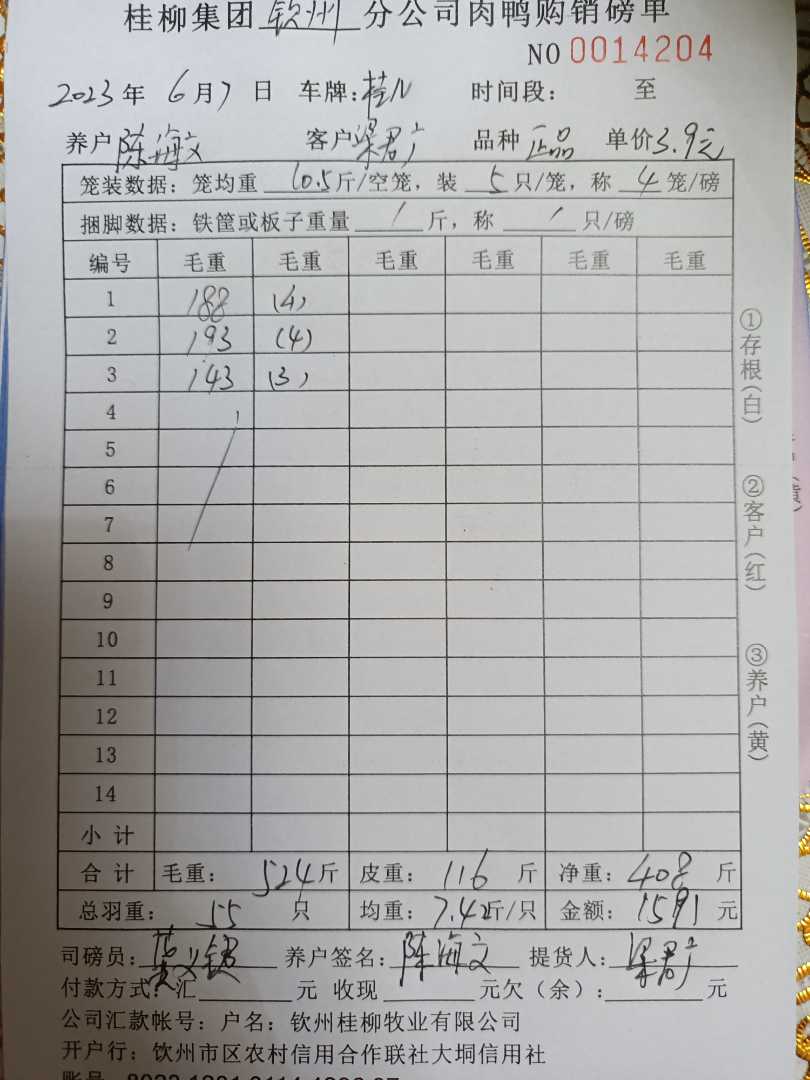 桂柳集团 钦州 分公司肉鸭购销磅单
NO 0014204
2023年 6月7日 车牌:桂N 时间段: 至
养户 陈海文 客户 梁君广 品种 正品 单价3.9元
笼装数据：笼均重 10.5斤/空笼，装 5 只/笼，称 4 笼/磅
捆脚数据：铁筐或板子重量 / 斤，称 / 只/磅
编号 毛重 毛重 毛重 毛重 毛重 毛重
1 188 (4)
2 193 (4)
3 143 (3)
4
5
6
7
8
9
10
11
12
13
14
小 计
合 计 毛重: 524斤 皮重: 116 斤 净重: 408 斤
总羽重: 55 只 均重: 7.42斤/只 金额: 1591 元
司磅员: 养户签名: 陈海文 提货人: 梁君广
付款方式: 汇 元 收现 元欠（余）: 元
公司汇款帐号：户名：钦州桂柳牧业有限公司
开户行：钦州市区农村信用合作联社大垌信用社
①存根(白)
②客户(红)
③养户(黄)